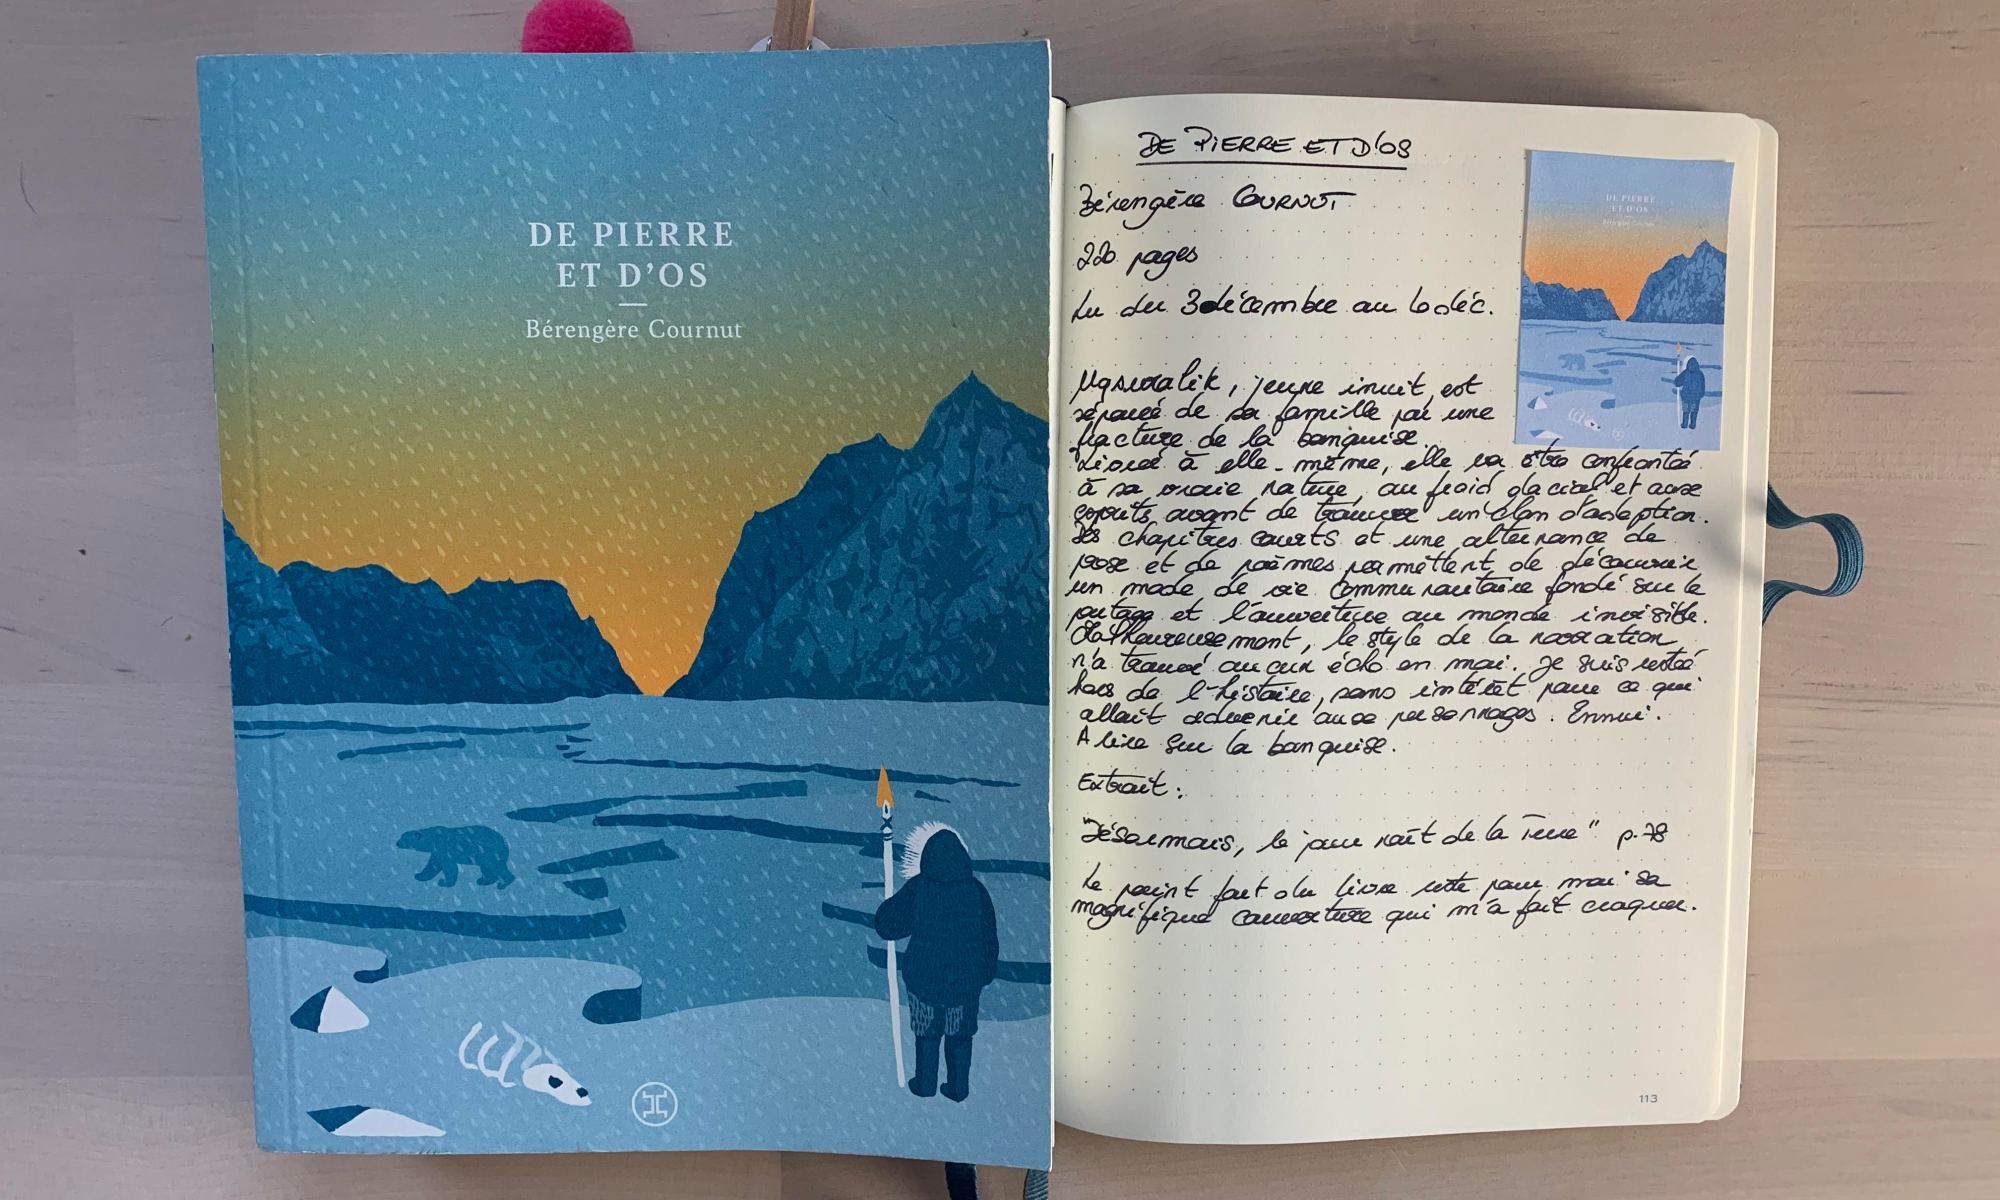 DE PIERRE
ET D'OS
Bérengère Cournut
DE PIERRE ET D'OS
Bérengère COURNUT
220 pages
Lu du 3 décembre au 6 déc.
DE PIERRE
ET D'OS
Bérengère Cournut
Uqsuralik, jeune inuit, est
séparée de sa famille par une
fracture de la banquise.
Livrée à elle-même, elle va être confrontée
à sa vraie nature, au froid glacial et aux
esprits avant de trouver un clan d'adoption.
Des chapitres courts et une alternance de
prose et de poèmes permettent de découvrir
un mode de vie communautaire fondé sur le
partage et l'ouverture au monde invisible.
Malheureusement, le style de la narration
n'a trouvé aucun écho en moi. Je suis restée
hors de l'histoire, sans intérêt pour ce qui
allait advenir aux personnages. Ennui.
A lire sur la banquise.
Extrait :
"Désormais, le jour naît de la Terre" p.78
Le point fort du livre reste pour moi sa
magnifique couverture qui m'a fait craquer.
113